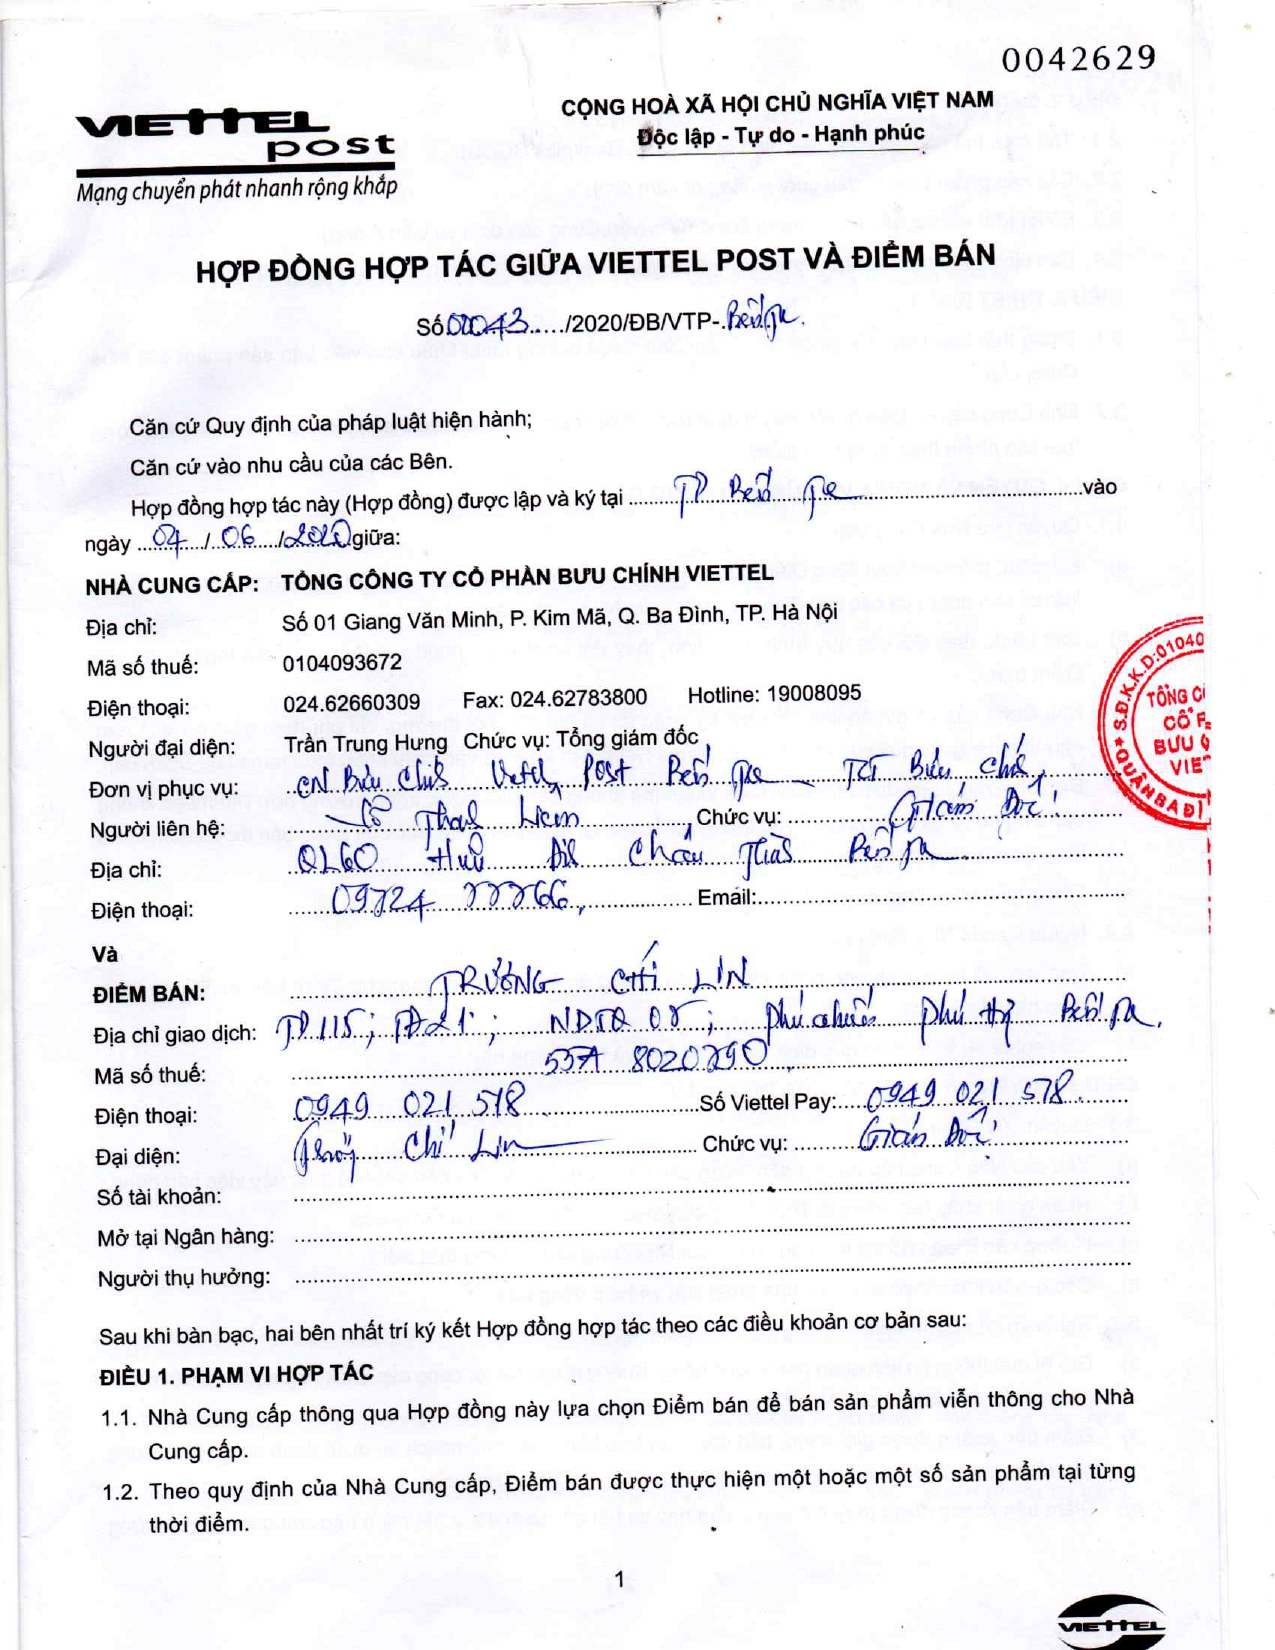 0042629
VIETTEL
post
Mạng chuyển phát nhanh rộng khắp
CỘNG HOÀ XÃ HỘI CHỦ NGHĨA VIỆT NAM
Độc lập - Tự do - Hạnh phúc
HỢP ĐỒNG HỢP TÁC GIỮA VIETTEL POST VÀ ĐIỂM BÁN
Số ...../2020/ĐB/VTP-.Bến Tre.
Căn cứ Quy định của pháp luật hiện hành;
Căn cứ vào nhu cầu của các Bên.
Hợp đồng hợp tác này (Hợp đồng) được lập và ký tại TP Bến Tre vào
ngày 04 / 06 / 2020 giữa:
NHÀ CUNG CẤP: TỔNG CÔNG TY CỔ PHẦN BƯU CHÍNH VIETTEL
Địa chỉ: Số 01 Giang Văn Minh, P. Kim Mã, Q. Ba Đình, TP. Hà Nội
Mã số thuế: 0104093672
Điện thoại: 024.62660309 Fax: 024.62783800 Hotline: 19008095
Người đại diện: Trần Trung Hưng Chức vụ: Tổng giám đốc
Đơn vị phục vụ: CN Bưu Chính Viettel Post Bến Tre - TCT Bưu Chính
Người liên hệ: Thanh Liêm Chức vụ: Giám Đốc
Địa chỉ: QL60 Hữu Định Châu Thành Bến Tre
Điện thoại: 09724 77766 Email:
Và
ĐIỂM BÁN: TRƯƠNG CHÍ LIN
Địa chỉ giao dịch: TĐ 115; TĐ 21; NDTQ 05; Phú Chiến Phú Hự Bến Tre.
Mã số thuế: 55A 8020790
Điện thoại: 0949 021 578 Số Viettel Pay: 0949 021 578
Đại diện: Trương Chí Lin Chức vụ: Giám Đốc
Số tài khoản:
Mở tại Ngân hàng:
Người thụ hưởng:
S.Đ.K.K.D:01040
TỔNG C
CỔ P
BƯU
VIE
QUẬN BA Đ
Sau khi bàn bạc, hai bên nhất trí ký kết Hợp đồng hợp tác theo các điều khoản cơ bản sau:
ĐIỀU 1. PHẠM VI HỢP TÁC
1.1. Nhà Cung cấp thông qua Hợp đồng này lựa chọn Điểm bán để bán sản phẩm viễn thông cho Nhà
Cung cấp.
1.2. Theo quy định của Nhà Cung cấp, Điểm bán được thực hiện một hoặc một số sản phẩm tại từng
thời điểm.
1
VIETTEL